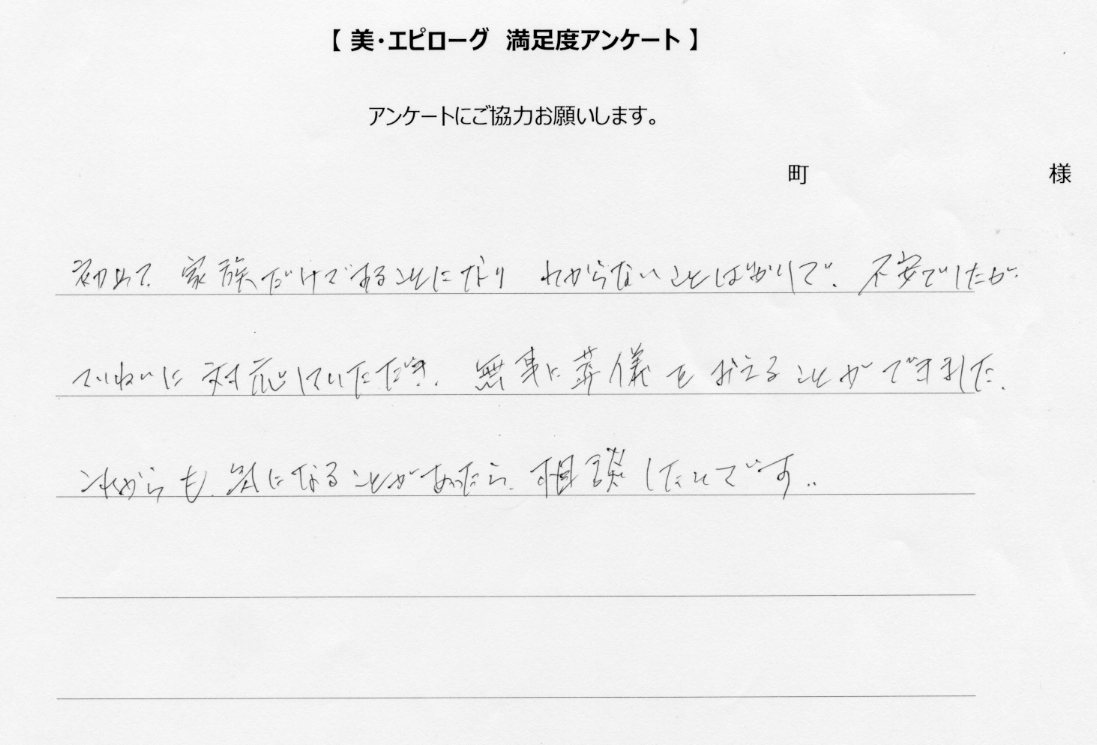 【 美・エピローグ 満足度アンケート 】
アンケートにご協力お願いします。
町 様
初めて 家族だけですることになり わからないことばかりで、不安でしたが
ていねいに 対応していただき、無事に葬儀をおえることができました。
これからも、気になることがあったら、相談したいです..